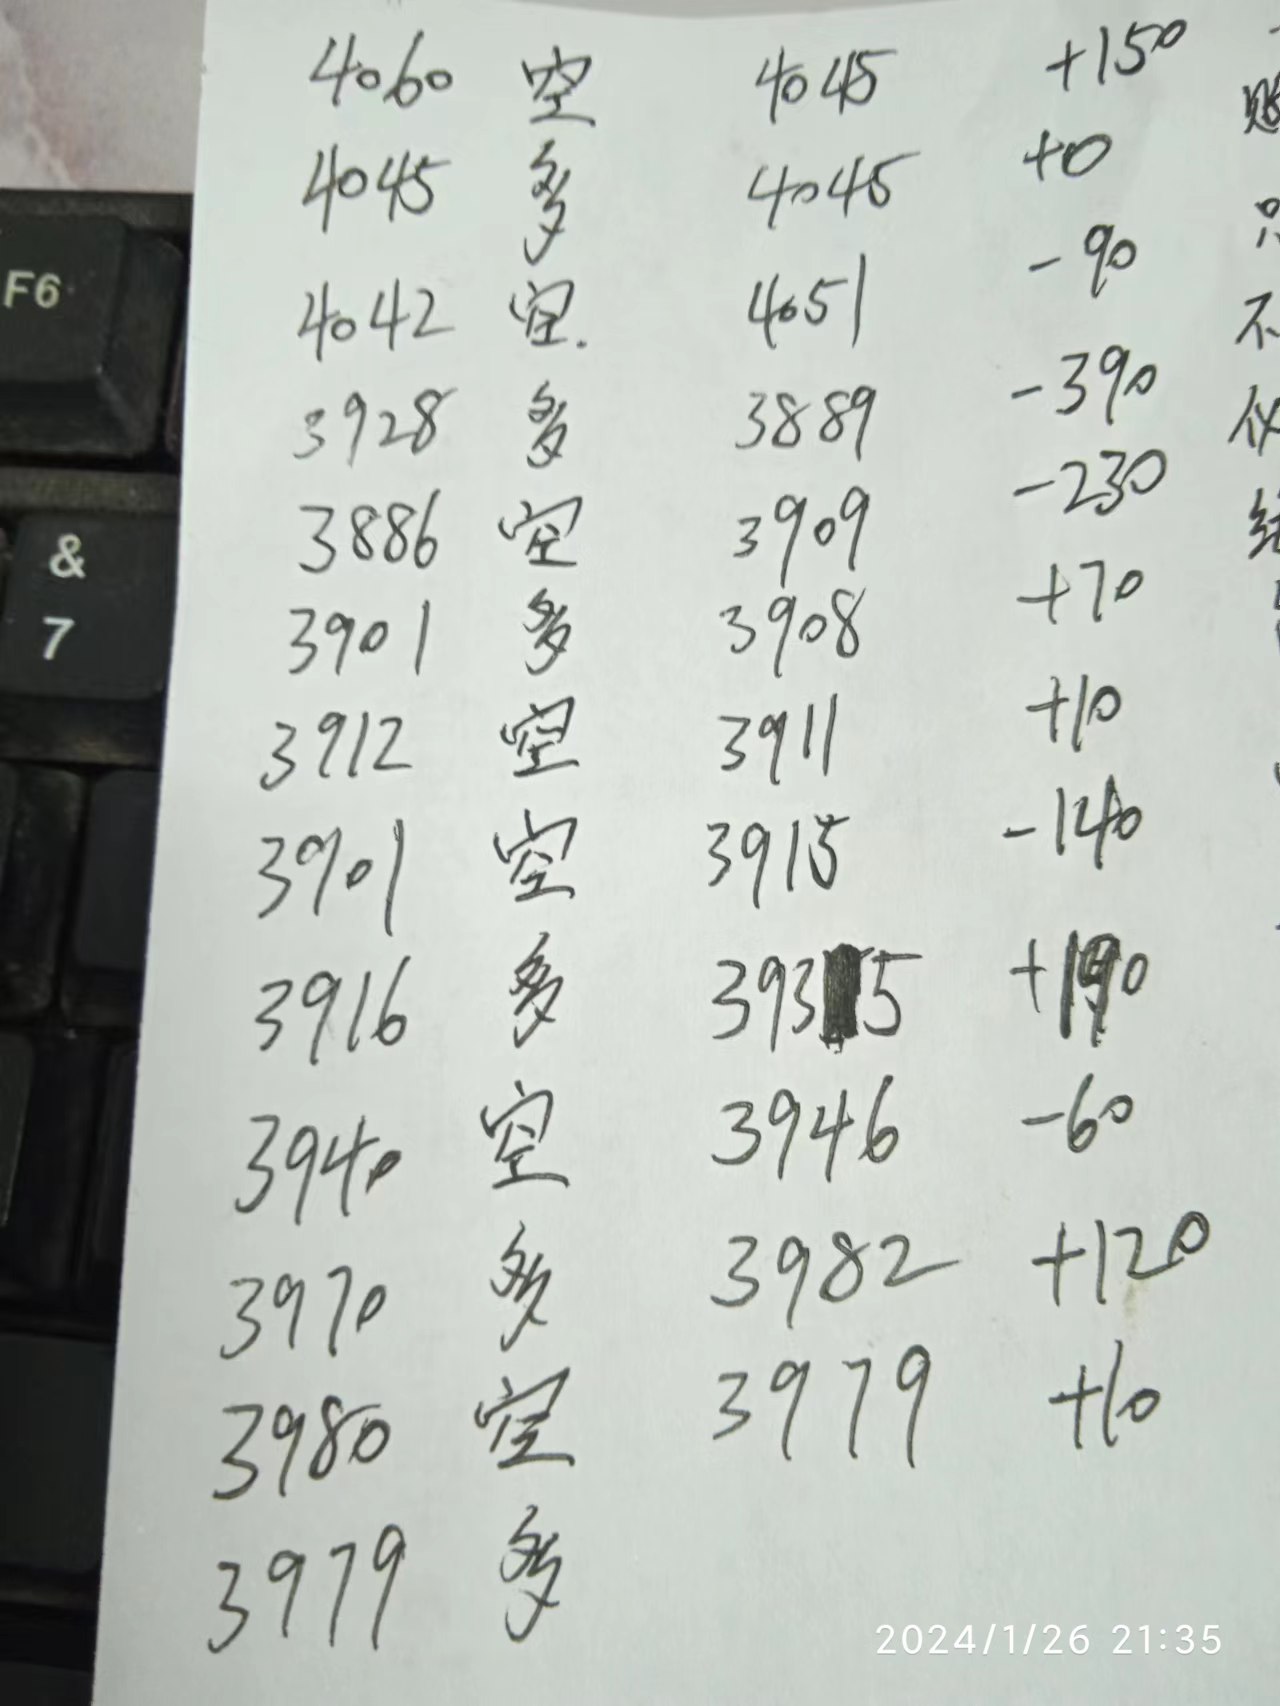 4060 空 4045 +150
4045 多 4045 +0
4042 空. 4051 -90
3928 多 3889 -390
3886 空 3909 -230
3901 多 3908 +70
3912 空 3911 +10
3901 空 3915 -140
3916 多 3935 +190
3940 空 3946 -60
3970 多 3982 +120
3980 空 3979 +10
3979 多
F6
&
7
不
2024/1/26 21:35